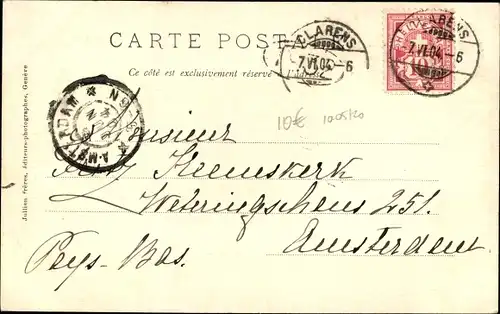 CARTE POST
Ce côté est exclusivement réservé
CLARENS
7.VI.04.-6
HELVE
10
CLARENS
7.VI.04.-6
AMSTERDAM
10€
Jullien frères, éditeurs-photographes, Genève
Monsieur
Heemskerk
Weteringschans 251.
Amsterdam
Pays-Bas.